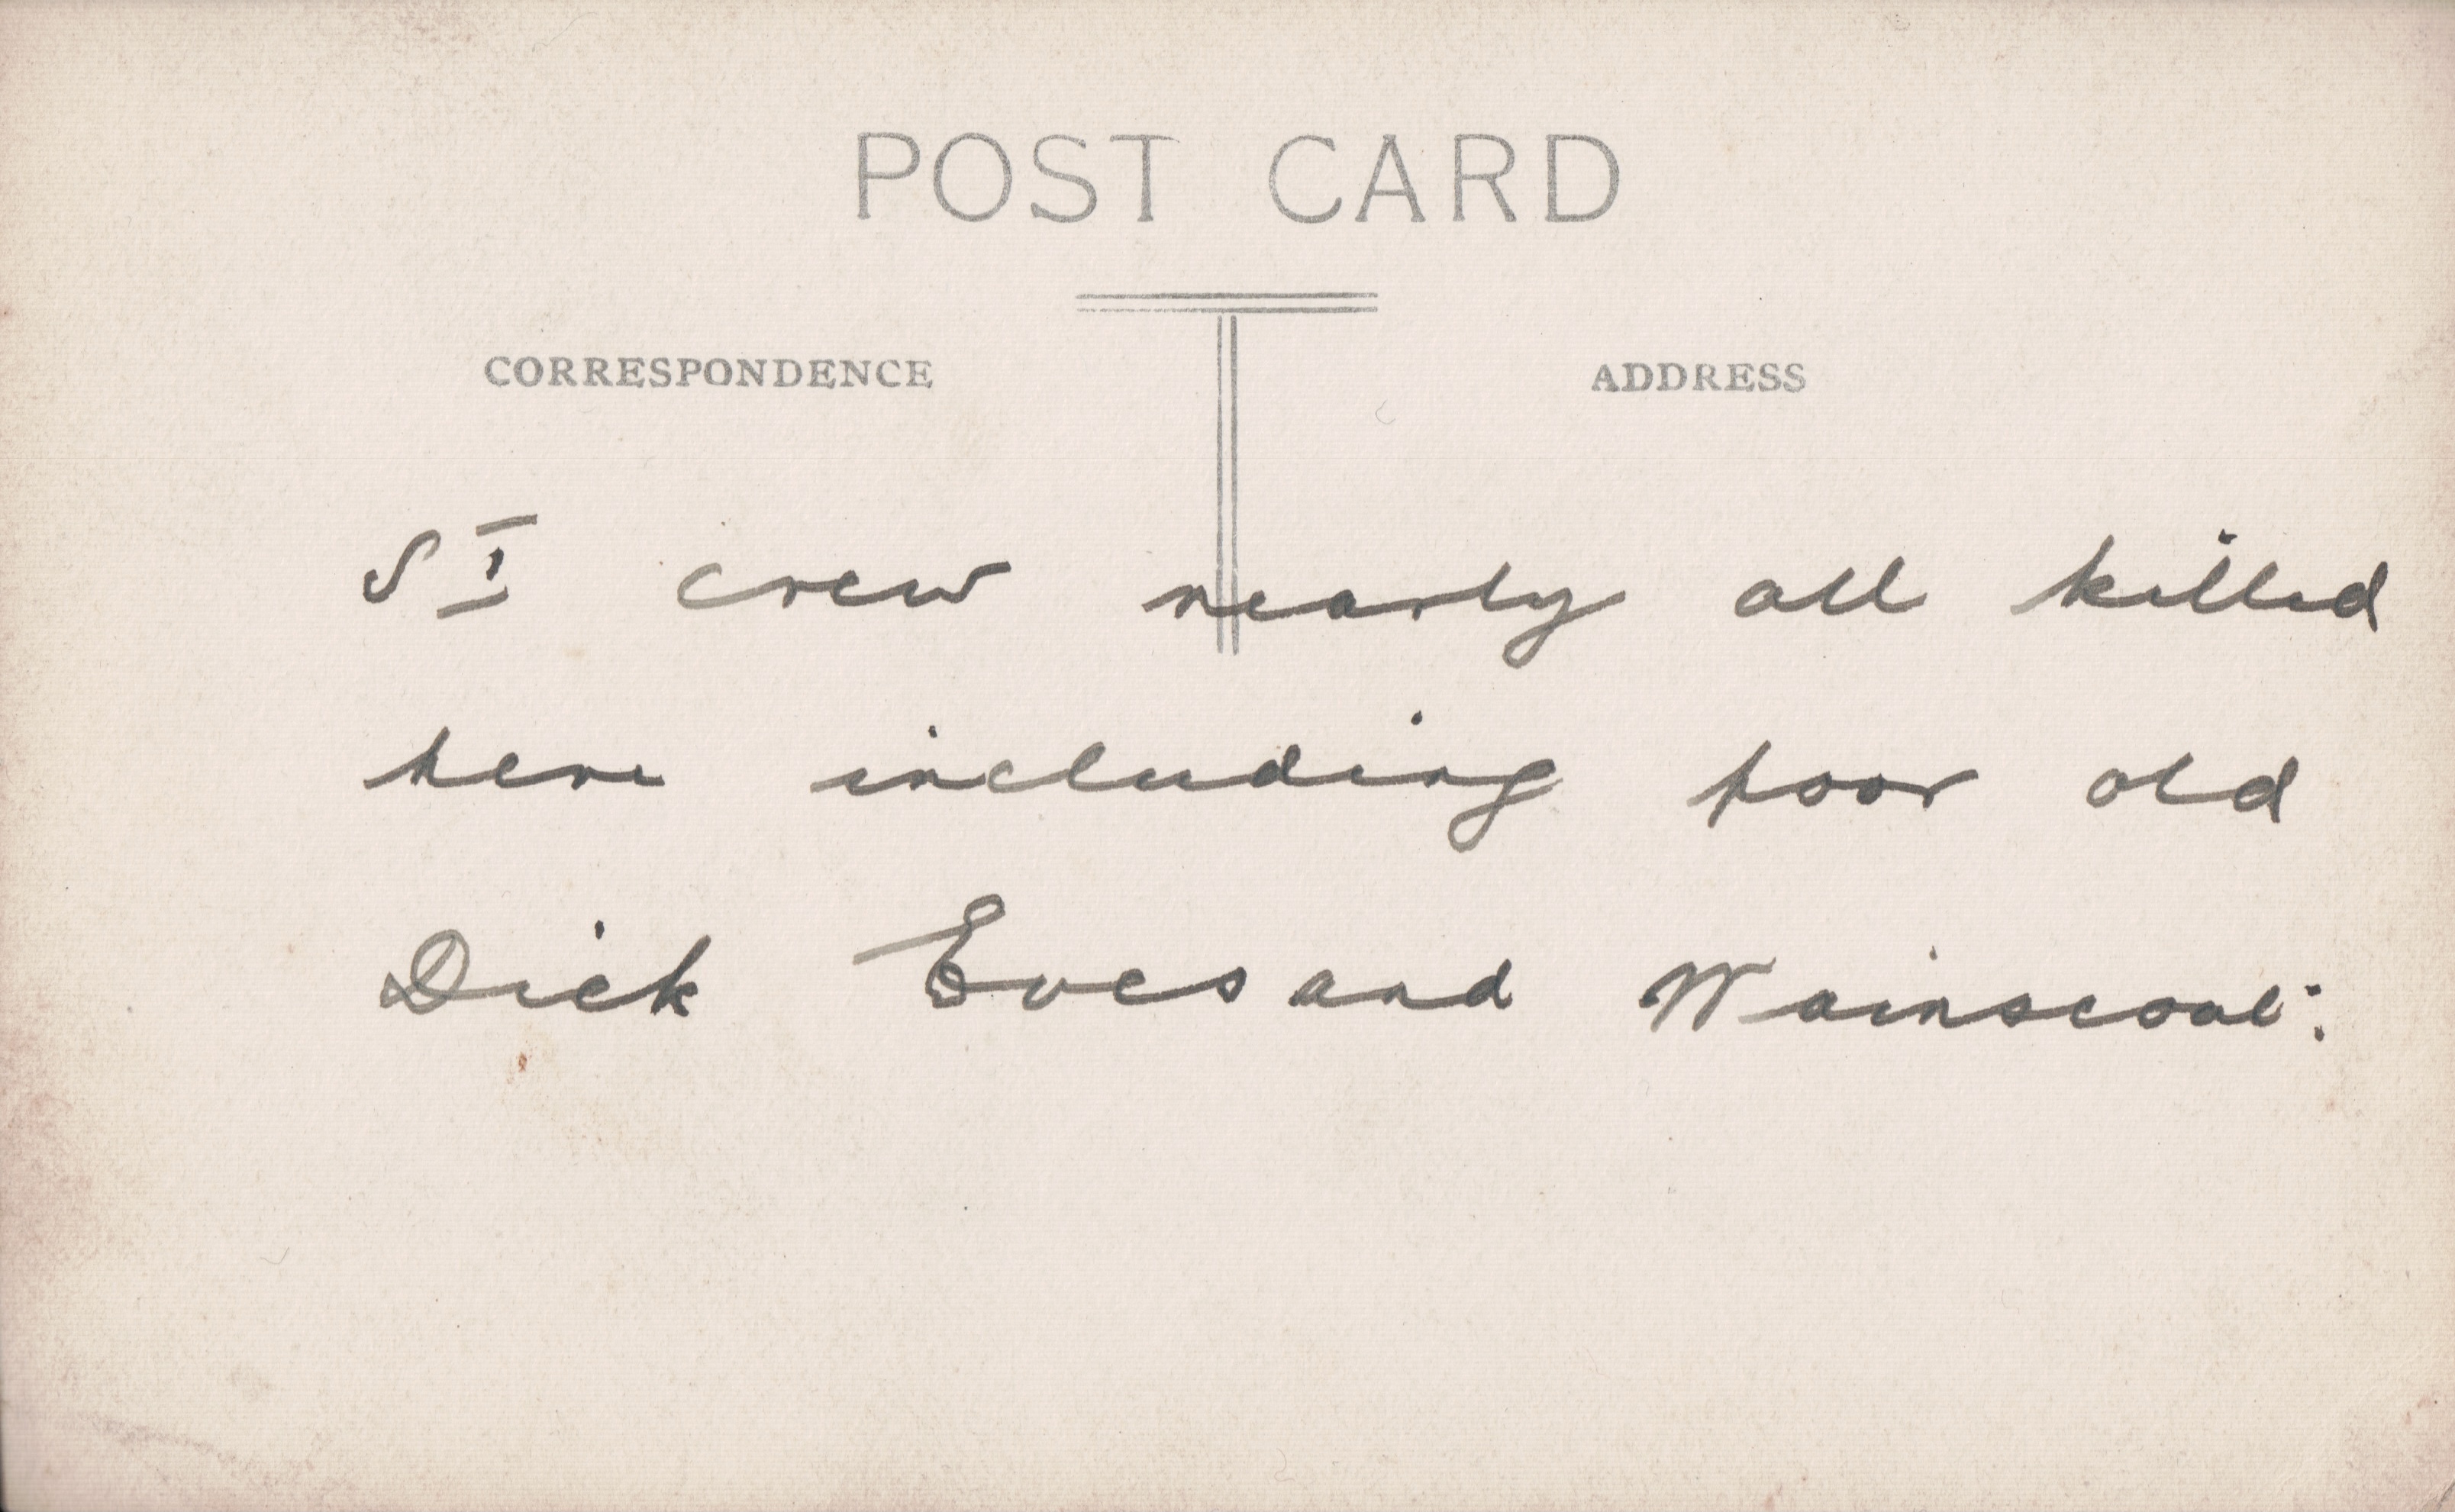 POST CARD
CORRESPONDENCE ADDRESS
S I crew nearly all killed
here including poor old
Dick Eves and